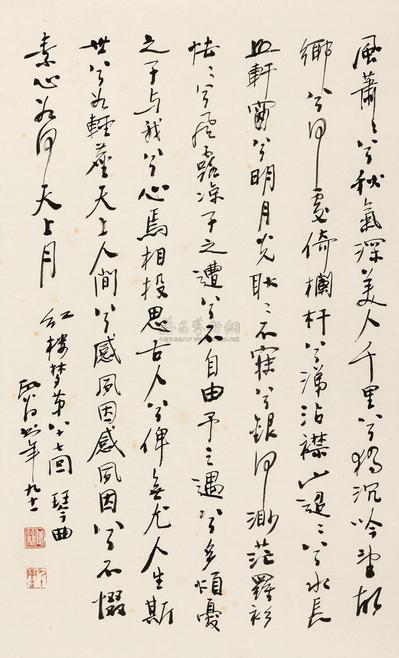 風蕭〻兮秋氣深美人千里兮獨沉吟望故
鄉兮何處倚欄杆兮涕沾襟山迢〻兮水長
照軒窗兮明月光耿〻不寐兮銀河渺茫羅衫
怯〻兮風露涼子之遭兮不自由予之遇兮多煩憂
之子与我兮心焉相投思古人兮俾無尤人生斯
世兮如輕塵天上人間兮感夙因感夙因兮不惙
素心如何天上月
红楼梦第八十七回 琴曲
年九十一